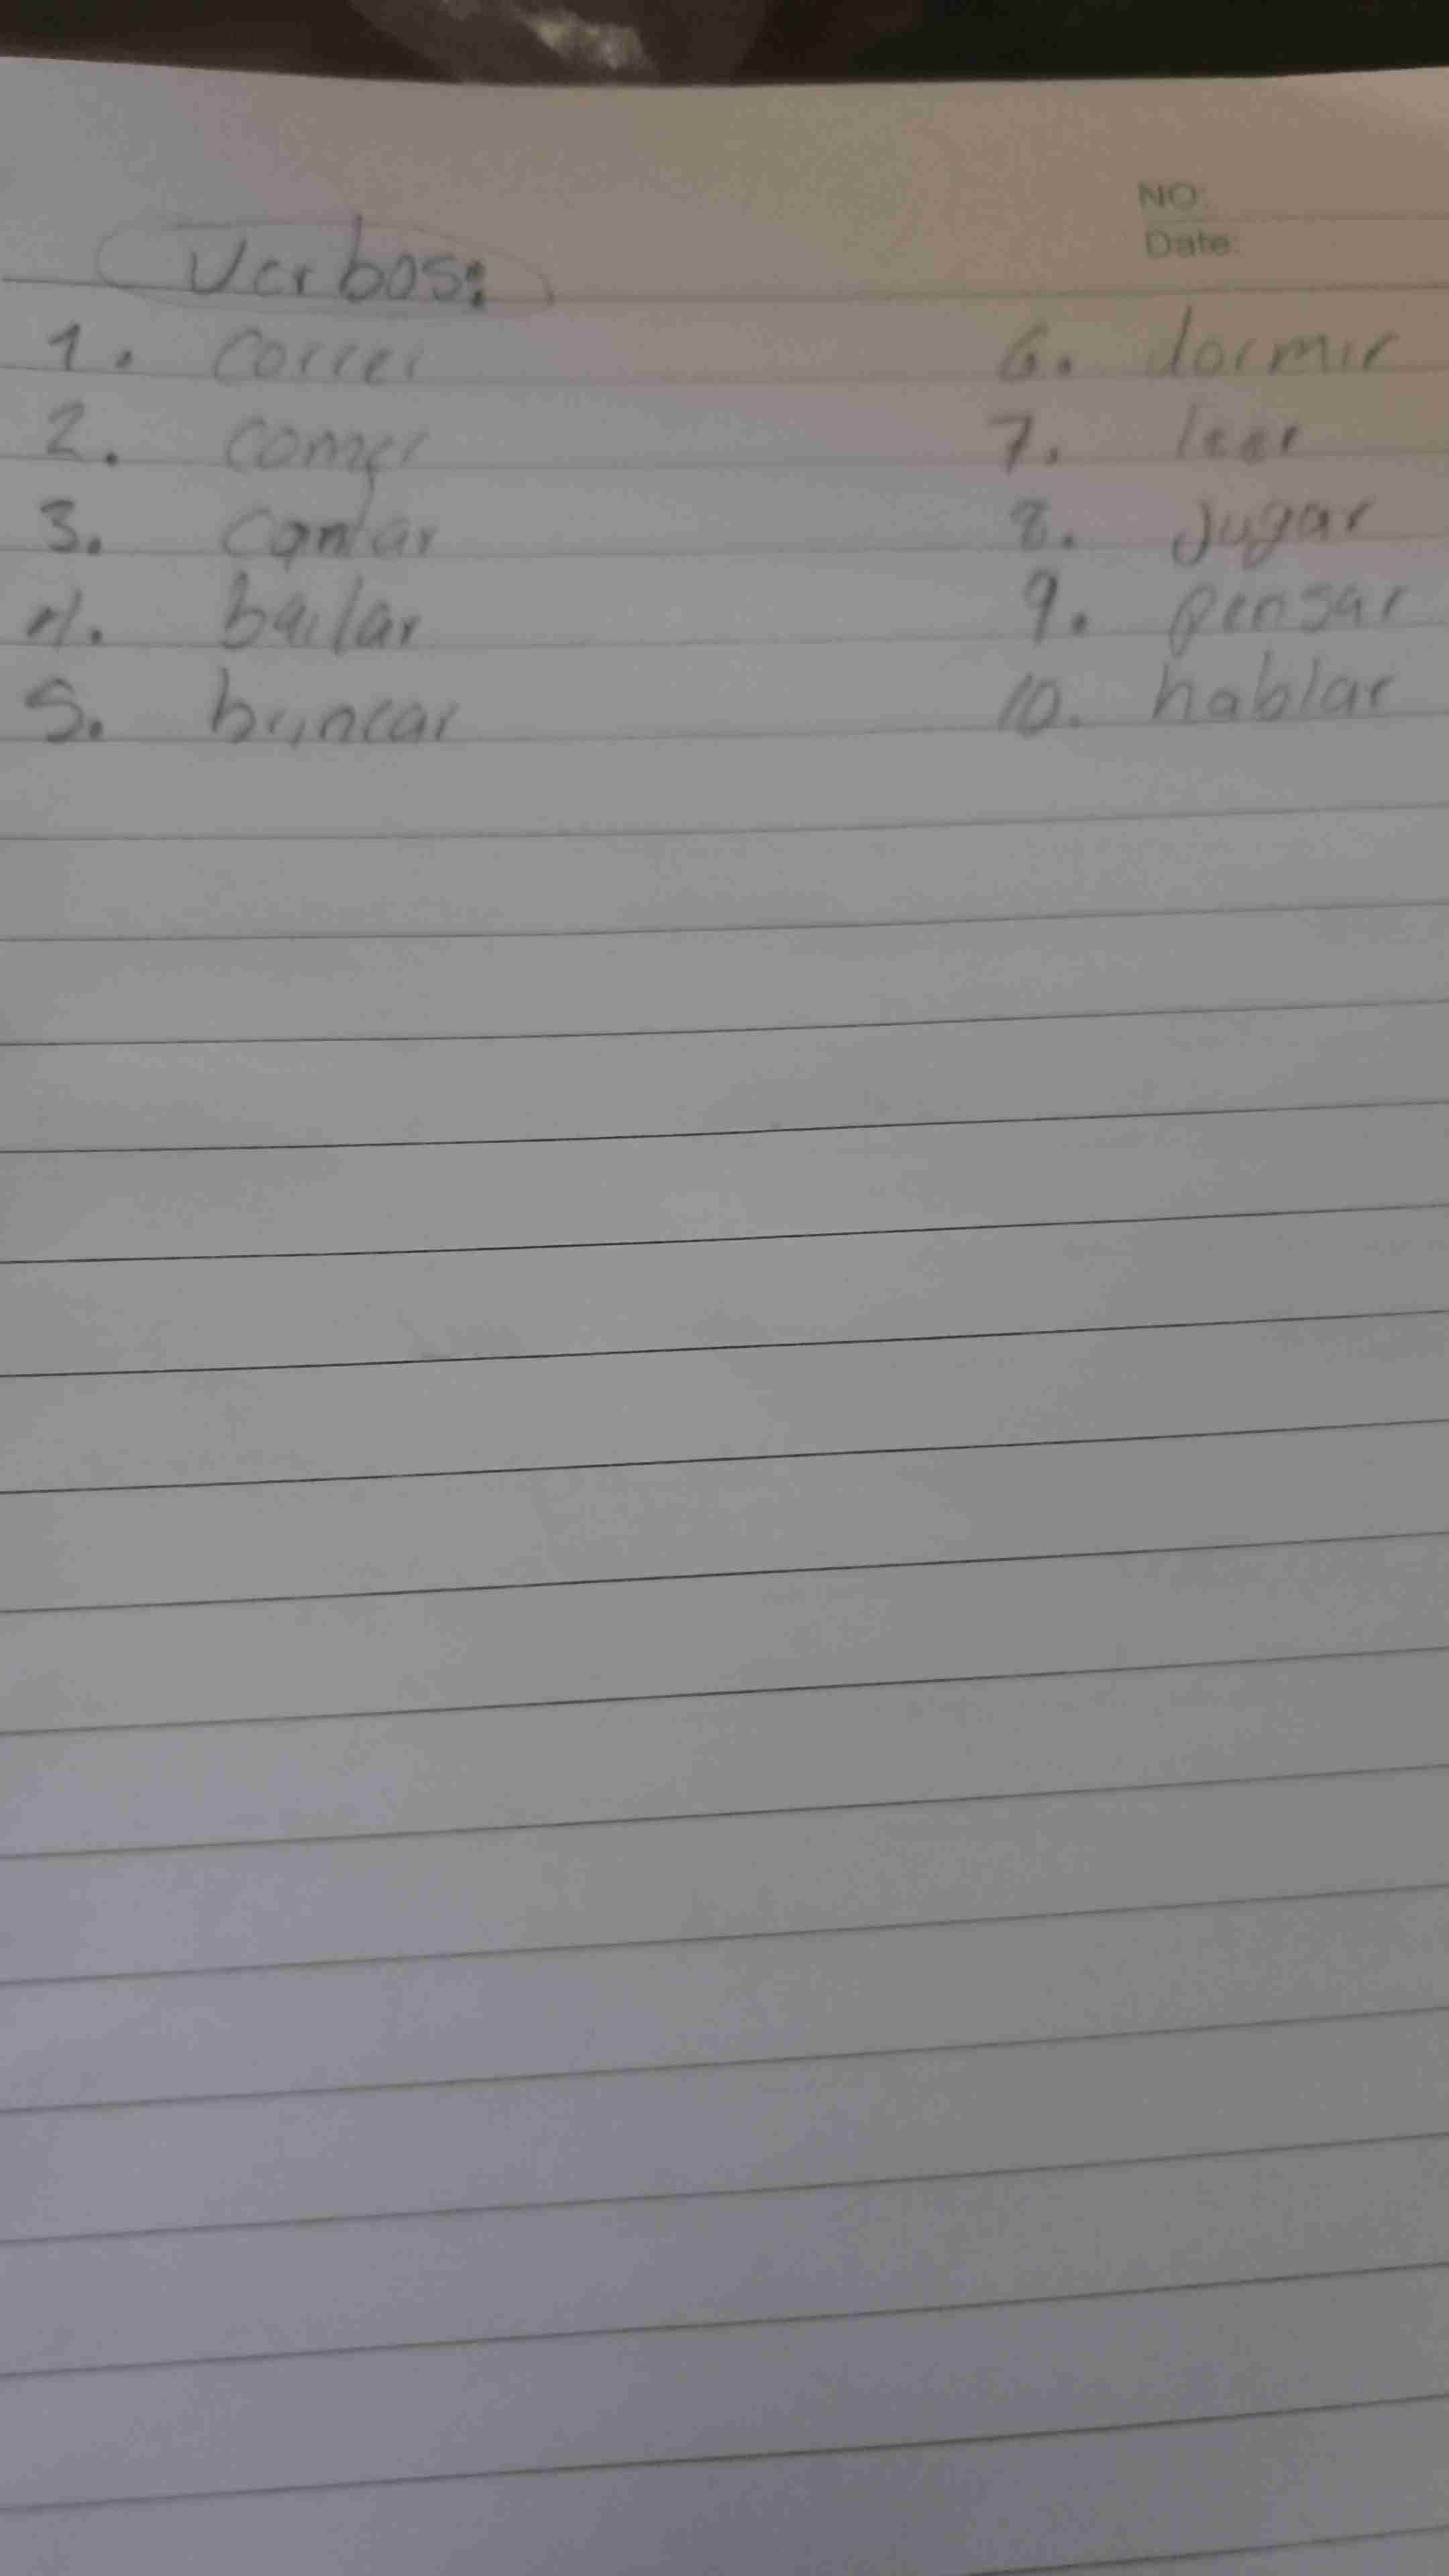 NO:
Date:
Verbos:
1. correr
2. comer
3. cantar
4. bailar
5. brincar
6. dormir
7. leer
8. jugar
9. pensar
10. hablar